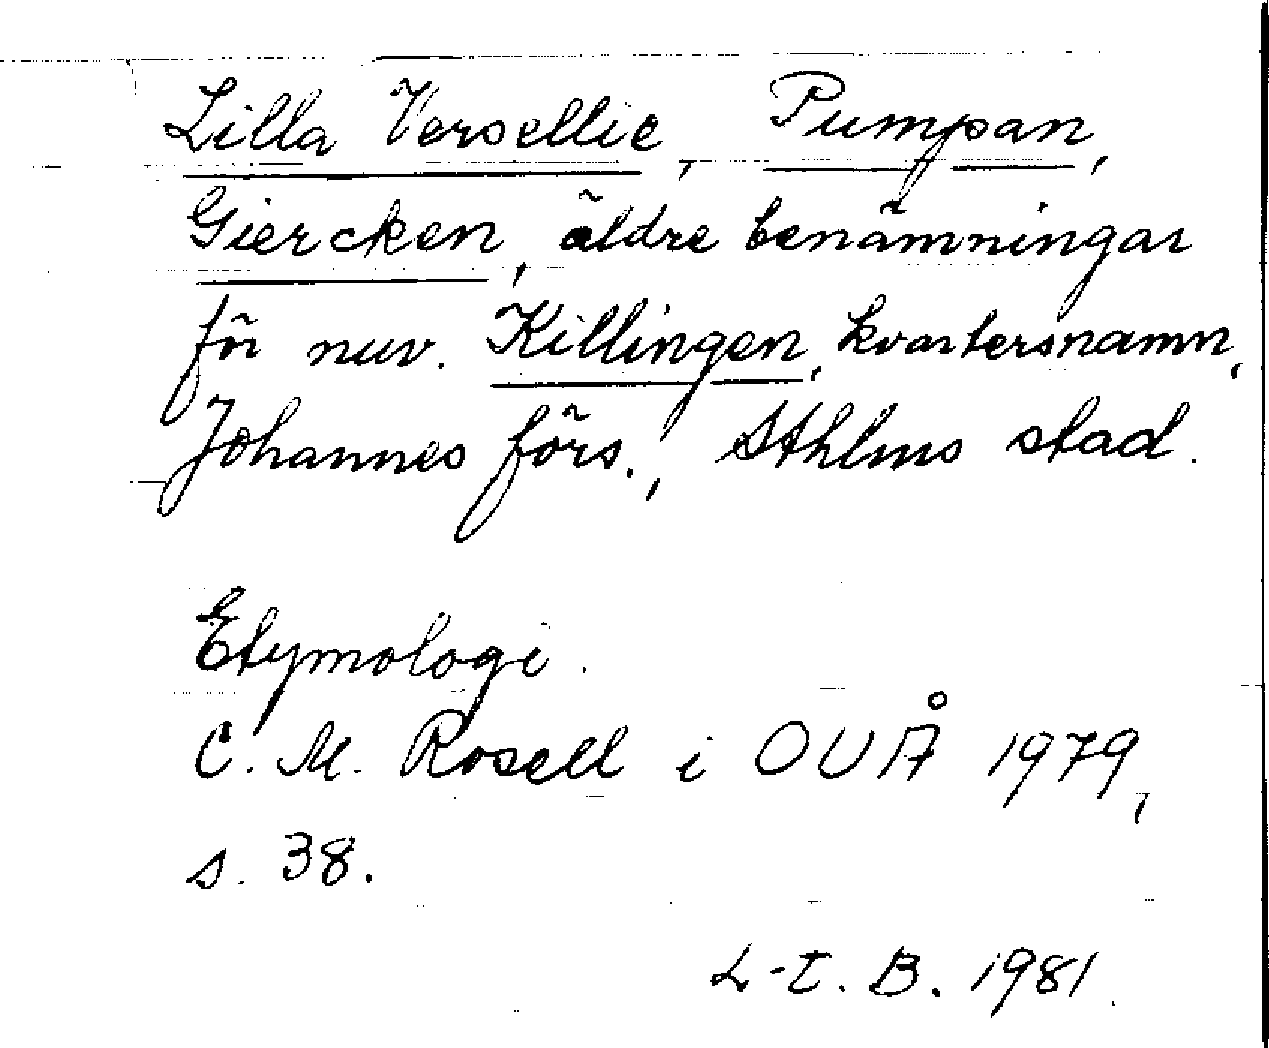 Lilla Versellie, Pumpan,
Giercken, äldre benämningar
för nuv. Killingen, kvartersnamn,
Johannes förs., Sthlms stad.
Etymologi.
C. M. Rosell i OUÅ 1979,
s. 38.
L-t. B. 1981.